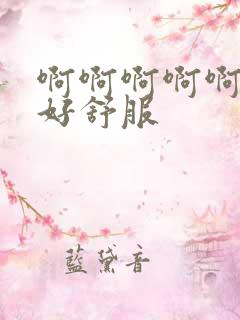 啊啊啊啊啊
好舒服
藍黛音